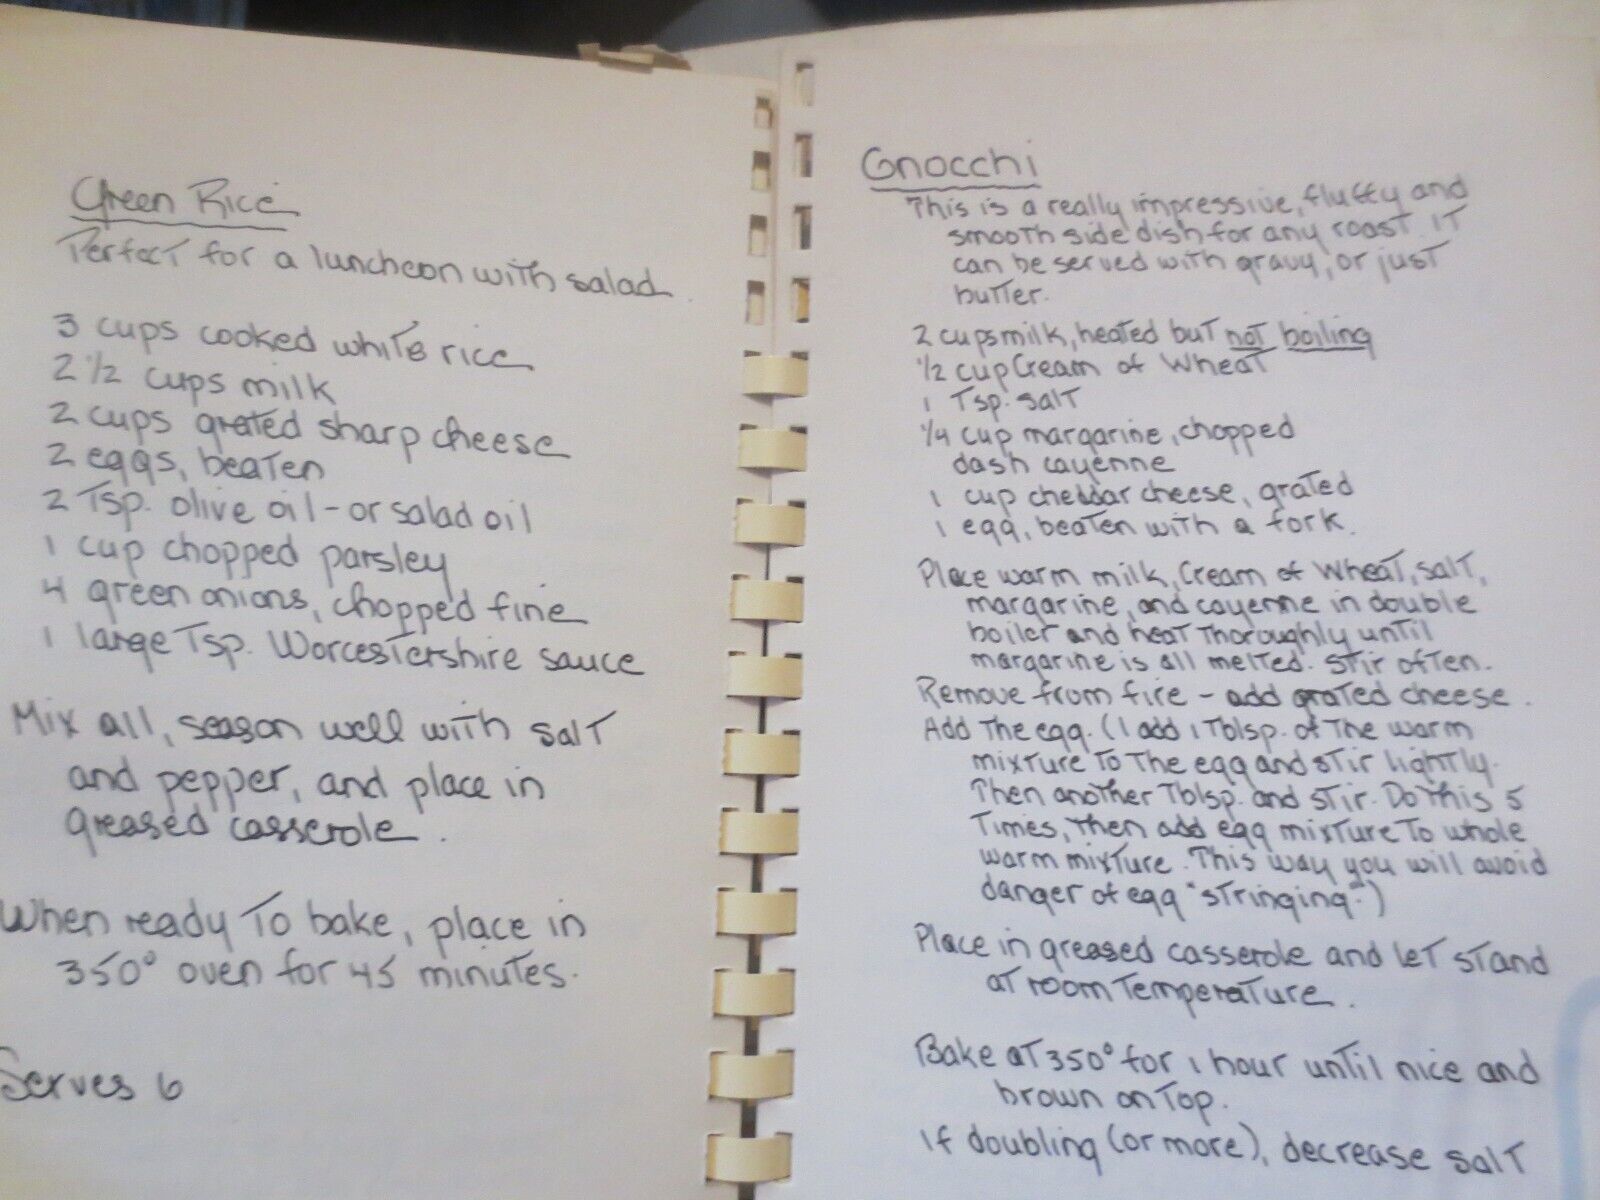 Green Rice
Perfect for a luncheon with salad.
3 cups cooked white rice
2 1/2 cups milk
2 cups grated sharp cheese
2 eggs, beaten
2 Tsp. olive oil - or salad oil
1 cup chopped parsley
4 green onions, chopped fine
1 large Tsp. Worcestershire sauce
Mix all, season well with salt
and pepper, and place in
greased casserole.
When ready to bake, place in
350° oven for 45 minutes.
Serves 6
Gnocchi
This is a really impressive, fluffy and
smooth side dish for any roast. It
can be served with gravy, or just
butter.
2 cups milk, heated but not boiling
1/2 cup Cream of Wheat
1 Tsp. salt
1/4 cup margarine, chopped
dash cayenne
1 cup cheddar cheese, grated
1 egg, beaten with a fork.
Place warm milk, Cream of Wheat, salt,
margarine, and cayenne in double
boiler and heat thoroughly until
margarine is all melted. Stir often.
Remove from fire - add grated cheese.
Add the egg. (I add 1 Tblsp. of the warm
mixture to the egg and stir lightly.
Then another Tblsp. and stir. Do this 5
times, then add egg mixture to whole
warm mixture. This way you will avoid
danger of egg "stringing.")
Place in greased casserole and let stand
at room temperature.
Bake at 350° for 1 hour until nice and
brown on top.
If doubling (or more), decrease salt